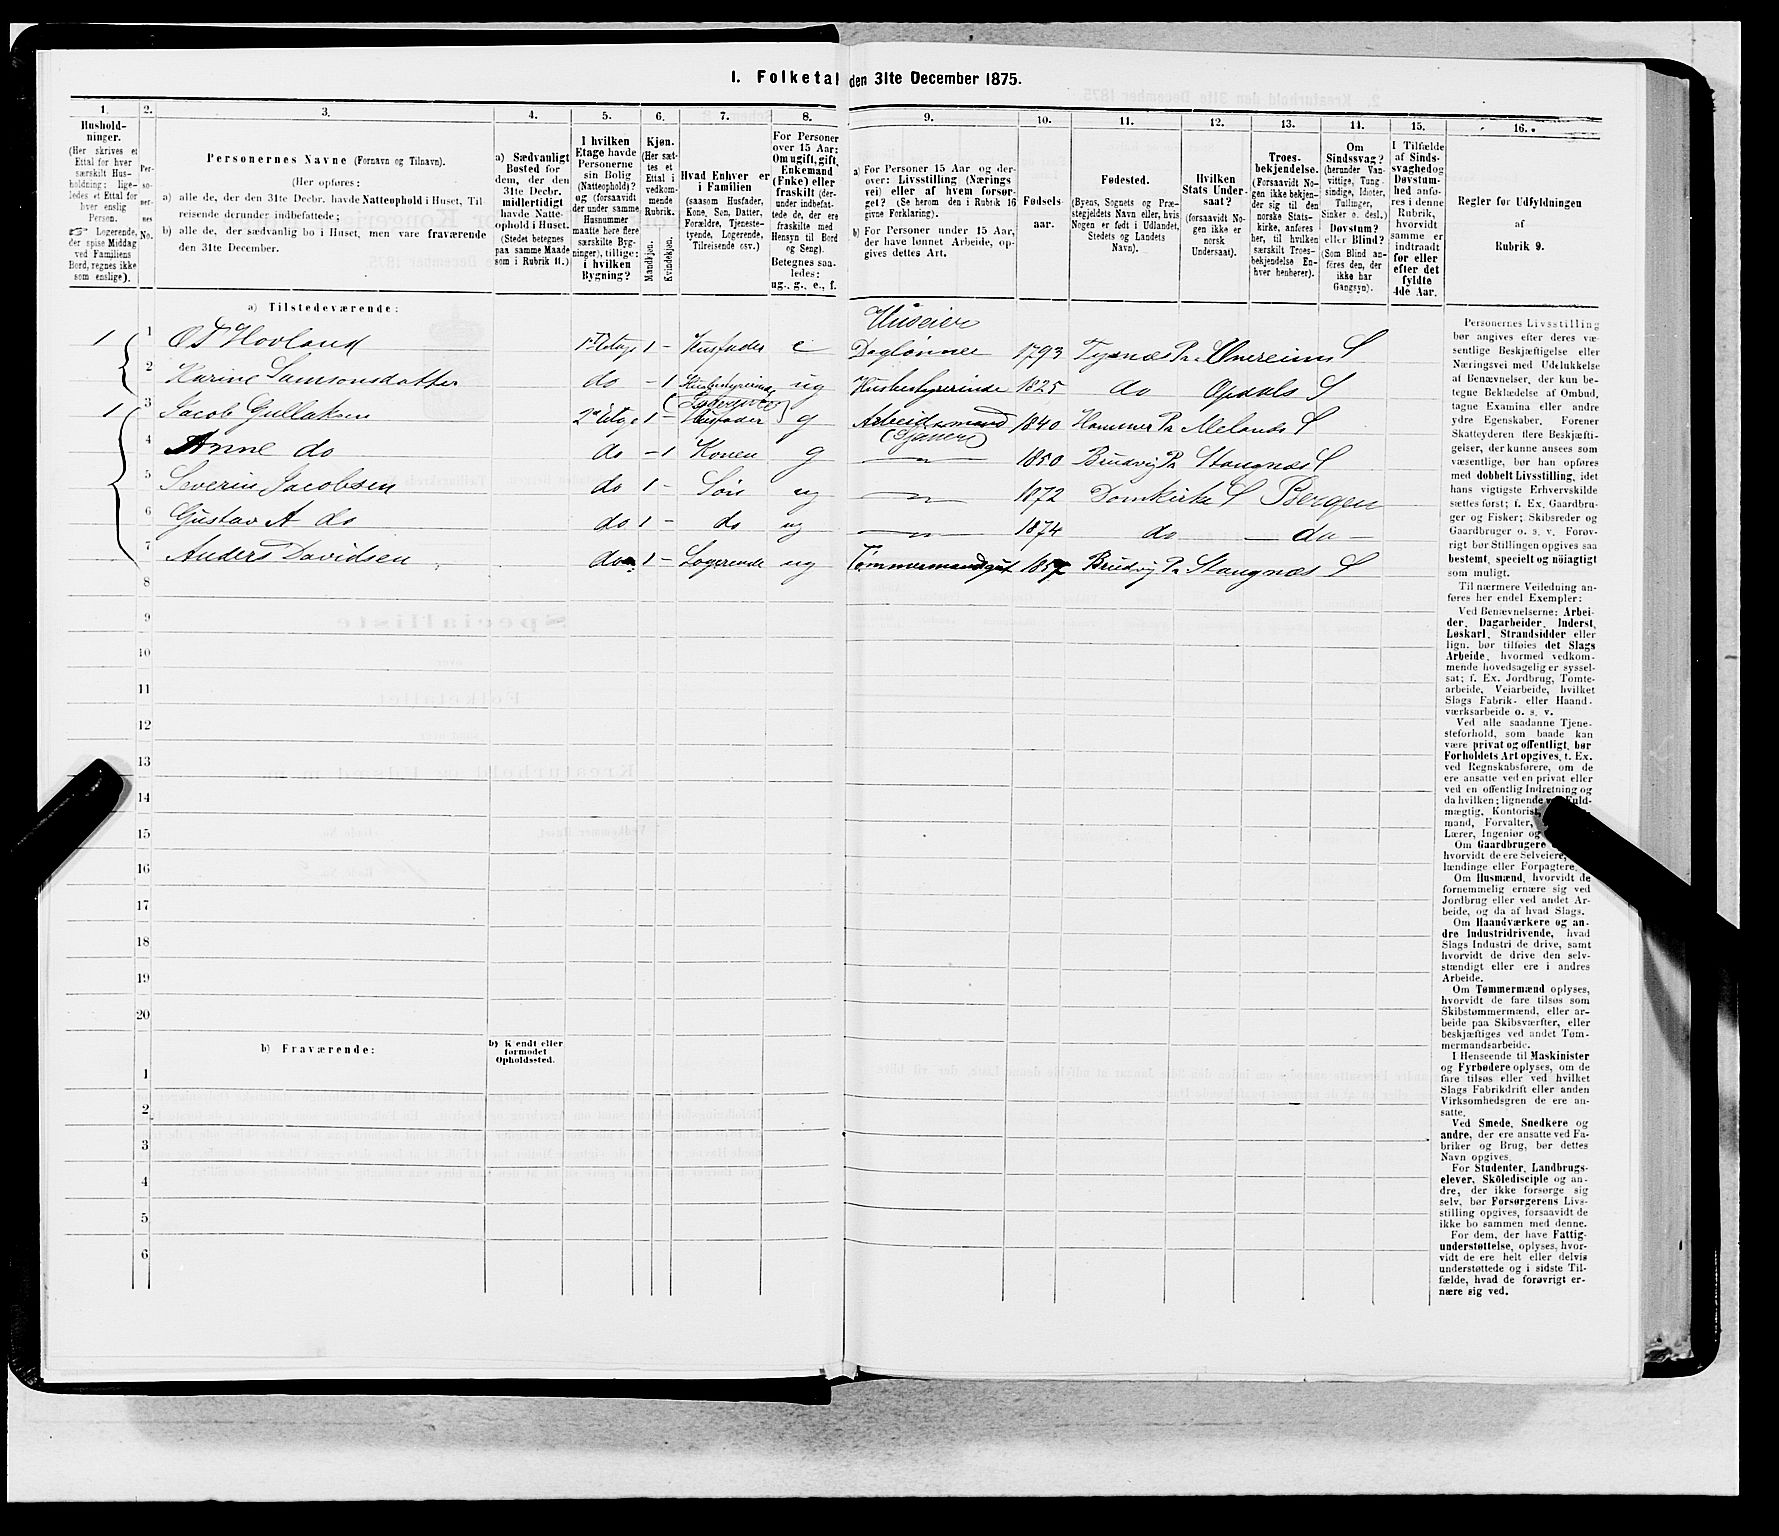 1. Folketal den 31te December 1875.
1.
2.
3.
4.
5.
6.
7.
8.
9.
10.
11.
12.
13.
14.
15.
16.
Hushold-
ninger.
(Her skrives et
Ettal for hver
særskilt Hus-
holdning; lige-
ledes et Ettal for
hver enslig
Person.
☞ Logerende,
der spise Middag
ved Familiens
Bord, regnes ikke
som enslige).
Per-
so-
ner-
nes
No.
Personernes Navne (Fornavn og Tilnavn).
(Her opføres:
a) alle de, der den 31te Decbr. havde Natteophold i Huset, Til
reisende derunder indbefattede;
b) alle de, der sædvanlig bo i Huset, men vare fraværende
den 31te December.
a) Sædvanligt
Bosted for
dem, der den
31te Decbr.
midlertidigt
havde Natte-
ophold i Huset.
(Stedet betegnes
paa samme Maade
som i Rubrik 11.)
I hvilken
Etage havde
Personerne
sin Bolig
(Natteophold)?
og (forsaavidt
der under samme
Husnummer
maatte høre flere
særskilte Byg-
ninger), tillige:
i hvilken
Bygning?
Kjøn.
(Her sæt-
tes et
Ettal i
vedkom-
mende
Rubrik.
Mandkjøn.
Kvindekjøn.
Hvad Enhver er
i Familien
(saasom Husfader,
Kone, Søn, Datter,
Forældre, Tjeneste-
tyende, Logerende,
Tilreisende osv.)
For Personer
over 15 Aar:
Om ugift, gift,
Enkemand
(Enke) eller
fraskilt (der-
under indbefat-
tede de, der ere
fraskilte med
Hensyn til Bord
og Seng).
Betegnes saa-
ledes:
ug., g., e., f.
a) For Personer 15 Aar og der-
over: Livsstilling (Nærings
vei) eller af hvem forsør-
get? (Se herom den i Rubrik 16
givne Forklaring).
b) For Personer under 15 Aar,
der have lønnet Arbeide, op-
gives dettes Art.
Fødsels-
aar.
Fødested.
(Byens, Sognets og Præ-
stegjeldets Navn eller, hvis
Nogen er født i Udlandet,
Stedets og Landets
Navn).
Hvilken
Stats Under-
saat?
(forsaavidt No-
gen ikke er
norsk
Undersaat).
Troes-
bekjendelse.
(Forsaavidt No-
gen ikke bekjen-
der sig til den
norske Stats-
kirke, anføres
her, til hvilken
særskilt Troes-
bekjendelse En-
hver henhører).
Om
Sindssvag?
(herunder Van-
vittige, Tung-
sindige, Idioter,
Tullinger,
Sinker o. desl.)
Døvstum?
eller Blind?
(Som Blind an-
føres den, der
ikke har
Gangsyn).
I Tilfælde
af Sinds-
svaghed og
Døvstum-
hed anfø-
res i denne
Rubrik,
hvorvidt
samme er
indtraadt
før eller
efter det
fyldte
4de Aar.
Regler for Udfyldningen
af
Rubrik 9.
a) Tilstedeværende:
Huseier
1 1 O T Hovland 1st Etage 1 - Husfader e Daglønner 1793 Tysnæs Pr S
2 Karine Samsonsdatter do - 1 Husbestyrerinde ug Husbestyrerinde 1825 do Opdals S
1 3 Jacob Gullaksen 2d Etage 1 - Husfader g Arbeidsmand 1840 Hammer Pr Melands S
4 Anne do do - 1 Konen g 1850 Brudvig Pr Stangnæs S
5 Severin Jacobsen do 1 - Søn ug 1872 Domkirke S Bergen
6 Gustav A do do 1 - do ug 1874 do - do -
7 Anders Davidsen do 1 - Logerende ug Tømmermandgut 1857 Bruvig Pr Stangnæs S
8
9
10
11
12
13
14
15
16
17
18
19
20
b) Fraværende:
b) Kjendt eller
formodet
Opholdssted.
1
2
3
4
5
6
Personernes Livsstilling
bør angives efter deres væ-
sentlige Beskjæftigelse eller
Næringsvei med Udelukkelse
af Benævnelser, der kun be-
tegne Beklædelse af Ombud,
tagne Examina eller andre
ydre Egenskaber. Forener
Skatteyderen flere Beskjæfti-
gelser, der kunne ansees som
væsentlige, bør han opføres
med dobbelt Livsstilling, idet
hans vigtigste Erhvervskilde
sættes først; f. Ex. Gaardbru-
ger og Fisker; Skibsreder og
Gaardbruger o. s. v. Forøv-
rigt bør Stillingen opgives saa
bestemt, specielt og nøiagtigt
som muligt.
Til nærmere Veiledning an-
føres her endel Exempler:
Ved Benævnelserne: Arbei-
der, Dagarbeider, Inderst,
Løskarl, Strandsidder eller
lign. bør tilføies det Slags
Arbeide, hvormed vedkom-
mende hovedsagelig er syssel-
sat; f. Ex. Jordbrug, Tomte-
arbeide, Veiarbeide, hvilket
Slags Fabrik- eller Haand-
værksarbeide o. s. v.
Ved alle saadanne Tjene-
steforhold, som baade kan
være privat og offentligt, bør
Forholdets Art opgives, f. Ex.
ved Regnskabsførere, om de
ere ansatte ved en privat eller
ved en offentlig Indretning og
da hvilken; lignende ved Fuld-
mægtig, Kontorist,
mand, Forvalter,
Lærer, Ingeniør og
Om Gaardbrugere
hvorvidt de ere Selveiere,
lændinge eller Forpagtere.
Om Husmænd, hvorvidt de
fornemmelig ernære sig ved
Jordbrug eller ved andet Ar-
beide, og da af hvad Slags.
Om Haandværkere og an-
dre Industridrivende, hvad
Slags Industri de drive, samt
hvorvidt de drive den selv-
stændigt eller ere i andres
Arbeide.
Om Tømmermænd oplyses,
hvorvidt de fare tilsøs som
Skibstømmermænd, eller ar-
beide paa Skibsværfter, eller
beskjæftiges ved andet Tøm-
mermandsarbeide.
I Henseende til Maskinister
og Fyrbødere oplyses, om de
fare tilsøs eller ved hvilket
Slags Fabrikdrift eller anden
Virksomhedsgren de ere an-
satte.
Ved Smede, Snedkere og
andre, der ere ansatte ved Fa-
briker og Brug, bør dettes
Navn opgives.
For Studenter, Landbrugs-
elever, Skoledisciple og an-
dre, der ikke forsørge sig
selv, bør Forsørgerens Livs-
stilling opgives, forsaavidt de
ikke bo sammen med denne.
For dem, der have Fattig-
understøttelse, oplyses, hvor-
vidt de ere helt eller delvis
understøttede og i sidste Til-
fælde, hvad de forøvrigt er-
nære sig ved.